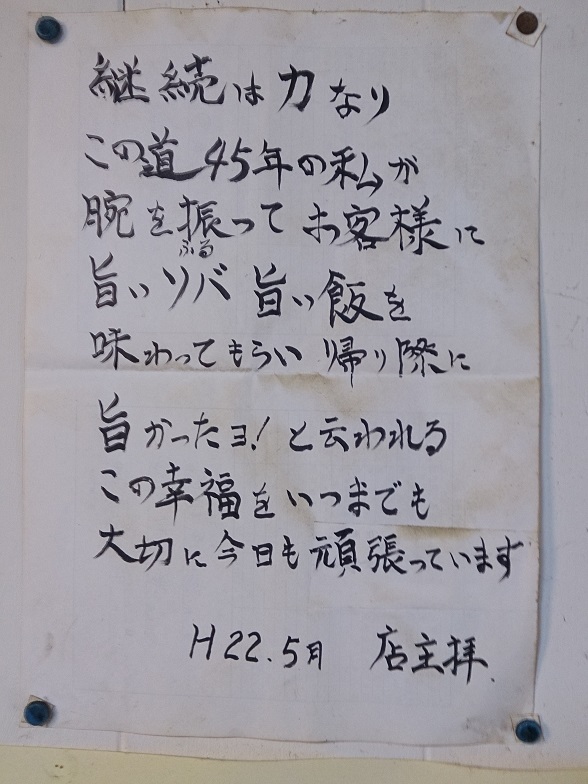 継続は力なり
この道45年の私が
腕を振って お客様に
ふる
旨いソバ 旨い飯を
味わってもらい 帰り際に
旨かったヨ！と云われる
この幸福をいつまでも
大切に今日も頑張っています
H22.5月 店主拝.